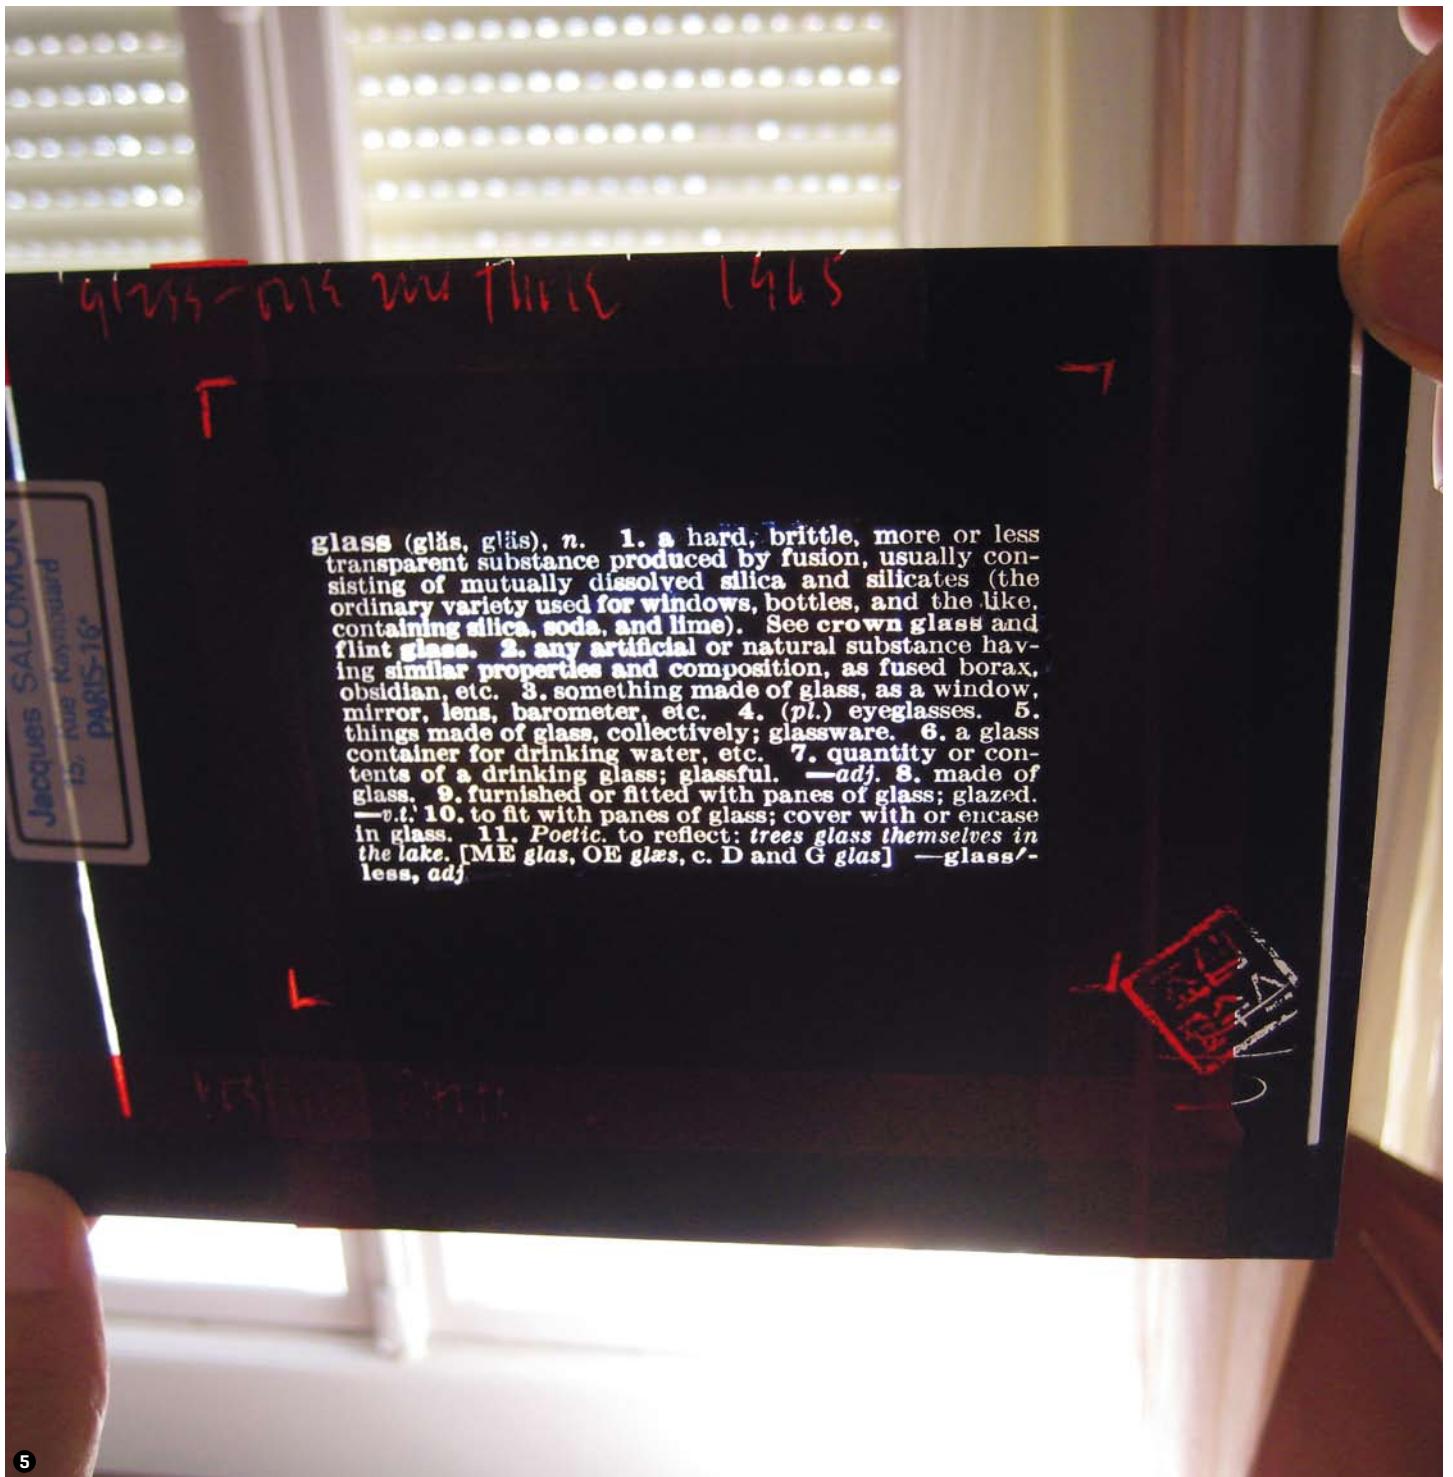 1965
glass (glăs, gläs), n. 1. a hard, brittle, more or less
transparent substance produced by fusion, usually con-
sisting of mutually dissolved silica and silicates (the
ordinary variety used for windows, bottles, and the like,
containing silica, soda, and lime). See crown glass and
flint glass. 2. any artificial or natural substance hav-
ing similar properties and composition, as fused borax,
obsidian, etc. 3. something made of glass, as a window,
mirror, lens, barometer, etc. 4. (pl.) eyeglasses. 5.
things made of glass, collectively; glassware. 6. a glass
container for drinking water, etc. 7. quantity or con-
tents of a drinking glass; glassful. —adj. 8. made of
glass. 9. furnished or fitted with panes of glass; glazed.
—v.t. 10. to fit with panes of glass; cover with or encase
in glass. 11. Poetic. to reflect: trees glass themselves in
the lake. [ME glas, OE glæs, c. D and G glas] —glass′-
less, adj
Jacques SALOMON
15, Rue Raynouard
PARIS-16e
5